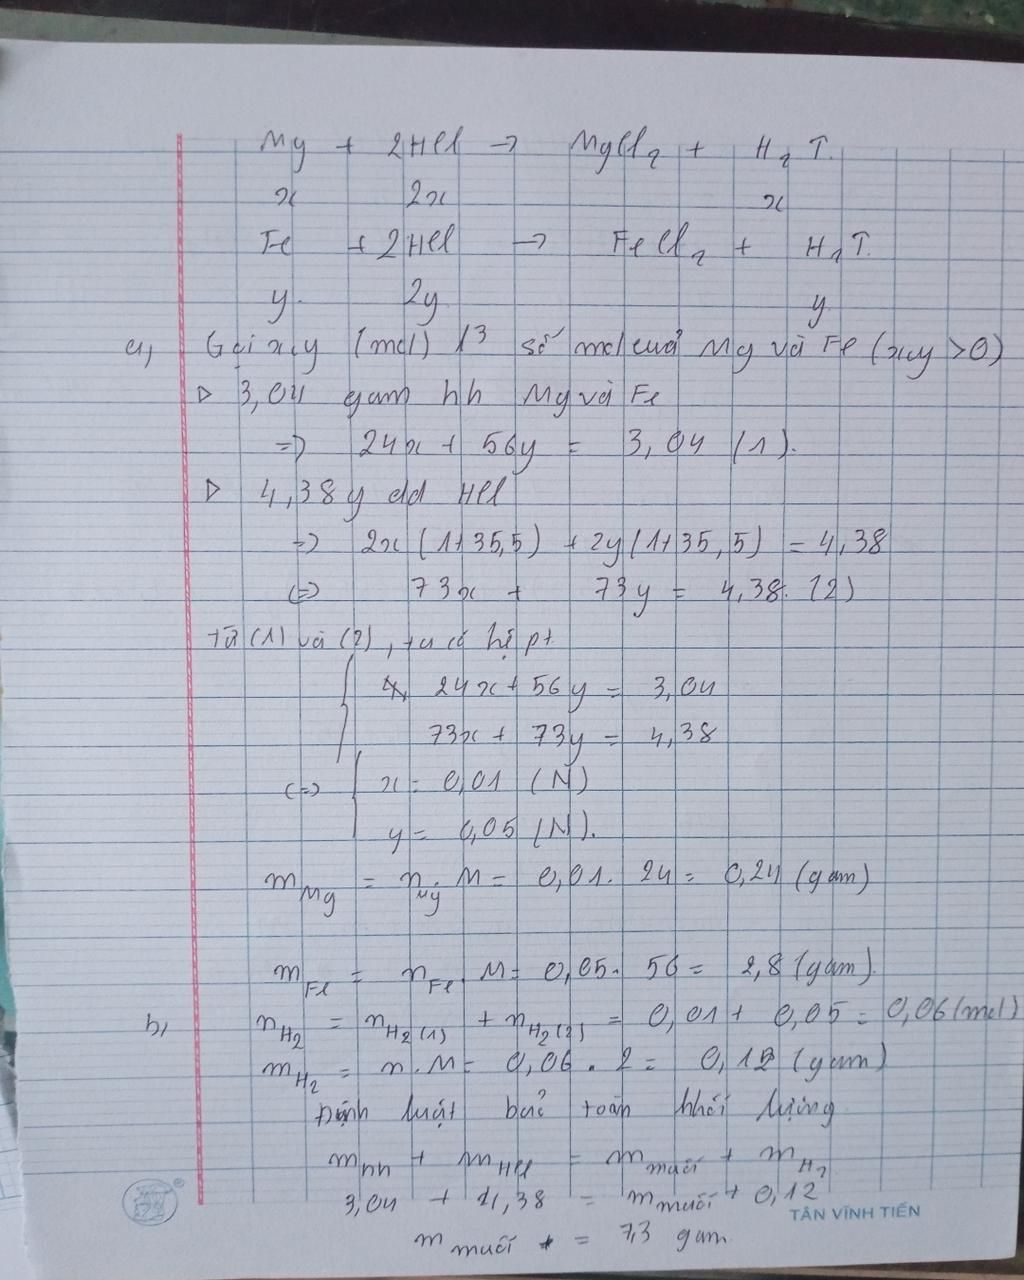 Mg + 2HCl → MgCl₂ + H₂ ↑.
x 2x x
Fe + 2HCl → FeCl₂ + H₂ ↑.
y. 2y y
a, Gọi x,y (mol) là số mol của Mg và Fe (x,y > 0)
▷ 3,04 gam hh Mg và Fe
=> 24x + 56y = 3,04 (1).
▷ 4,38g dd HCl
=> 2x(1+35,5) + 2y(1+35,5) = 4,38
(=> 73x + 73y = 4,38. (2)
Từ (1) và (2), ta có hệ pt
24x + 56y = 3,04
73x + 73y = 4,38
(=> x = 0,01 (N)
y = 0,05 (N).
m Mg = n Mg . M = 0,01. 24 = 0,24 (gam)
m Fe = n Fe. M = 0,05. 56 = 2,8 (gam).
b, n H₂ = n H₂(1) + n H₂(2) = 0,01 + 0,05 = 0,06 (mol)
m H₂ = n.M = 0,06 . 2 = 0,12 (gam)
Định luật bảo toàn khối lượng
m hh + m HCl = m muối + m H₂
3,04 + 4,38 = m muối + 0,12
TÂN VĨNH TIẾN
m muối = 7,3 gam.